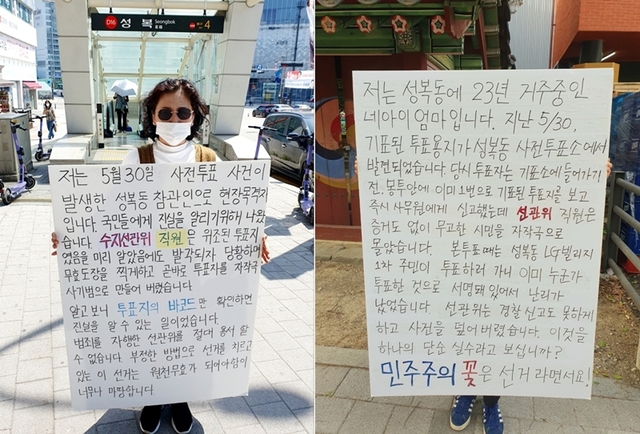 D16 성복 Seongbok 4
저는 5월 30일 사전투표 사건이
발생한 성복동 참관인으로 현장목격자
입니다. 국민들에게 진실을 알리기위해 나왔
습니다. 수지선관위 직원은 위조된 투표지
였음을 미리 알았음에도 발각되자 당황하며
무효도장을 찍게하고 곧바로 투표자를 자작극
사기범으로 만들어 버렸습니다.
알고보니 투표지의 바코드만 확인하면
진실을 알 수 있는 일이었습니다.
범죄를 자행한 선관위를 절대 용서 할
수 없습니다. 부정한 방법으로 선거를 치르고
있는 이 선거는 원천무효가 되어야함이
너무나 마땅합니다.
저는 성복동에 23년 거주중인
네아이 엄마입니다. 지난 5/30,
기표된 투표용지가 성복동 사전투표소에서
발견되었습니다. 당시 투표자는 기표소에 들어가기
전, 봉투안에 이미 1번으로 기표된 투표지를 보고
즉시 사무원에게 신고했는데 선관위 직원은
증거도 없이 무고한 시민을 자작극으로
몰았습니다. 본투표때는 성복동 LG빌리지
1차 주민이 투표하러 가니 이미 누군가
투표한 것으로 서명돼있어서 난리가
났었습니다. 선관위는 경찰신고도 못하게
하고 사건을 덮어 버렸습니다. 이것을
하나의 단순 실수라고 보십니까?
민주주의 꽃은 선거 라면서요!